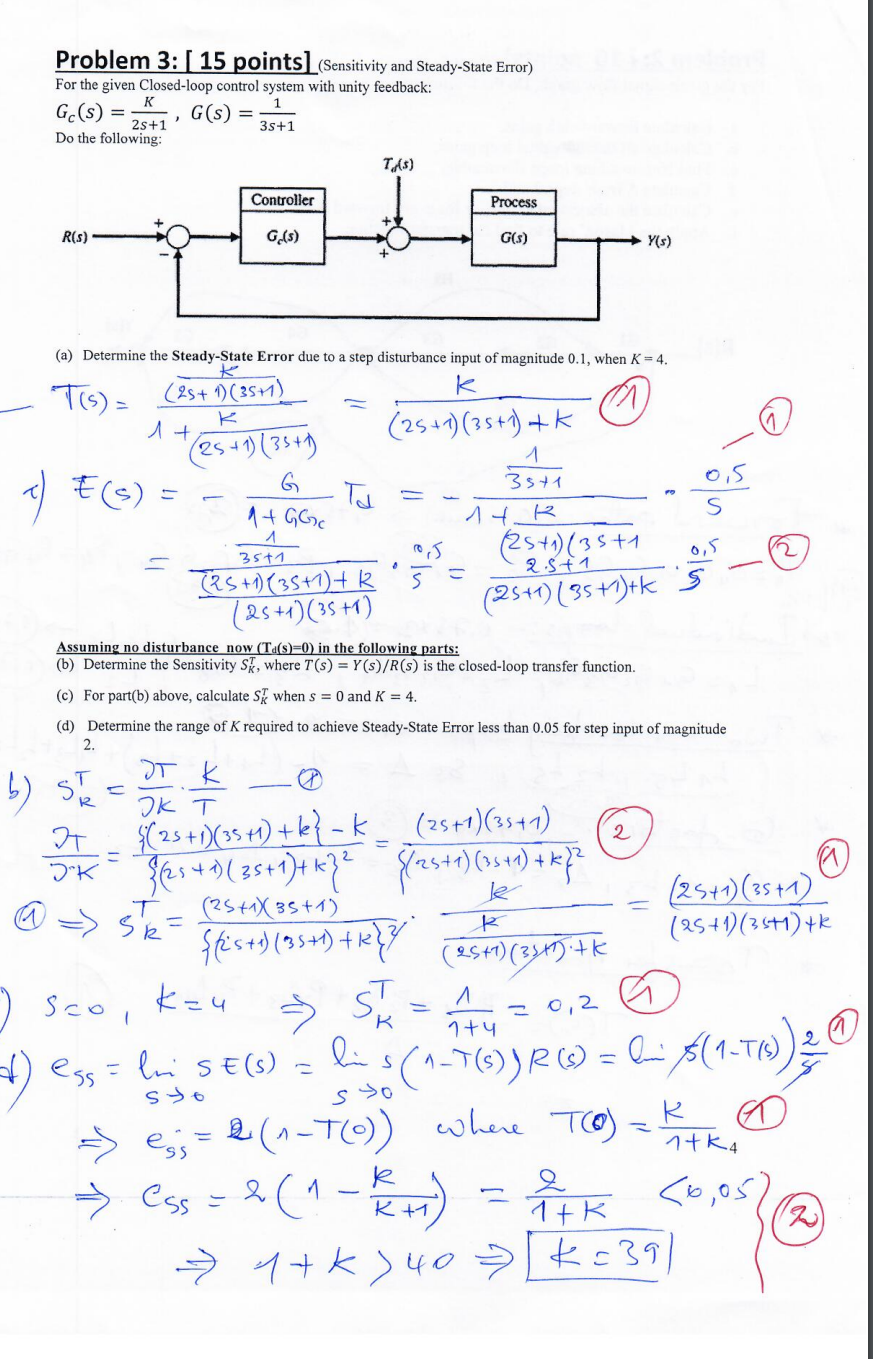 Problem 3: [ 15 points] (Sensitivity and Steady-State Error)
For the given Closed-loop control system with unity feedback:
G_c(s) = K/(2s+1) , G(s) = 1/(3s+1)
Do the following:
T_d(s)
Controller
Process
R(s)
+
−
G_c(s)
+
+
G(s)
Y(s)
(a) Determine the Steady-State Error due to a step disturbance input of magnitude 0.1, when K = 4.
T(s) = (k/((2s+1)(3s+1)))/(1 + k/((2s+1)(3s+1))) = k/((2s+1)(3s+1)+k) 1
1
E(s) = − G/(1+GG_c) T_d = − (1/(3s+1))/(1+ k/((2s+1)(3s+1)) · 0,5/s
= (1/(3s+1))/(((2s+1)(3s+1)+k)/((2s+1)(3s+1))) · 0,5/s = (2s+1)/((2s+1)(3s+1)+k) · 0,5/s — 2
Assuming no disturbance now (T_d(s)=0) in the following parts:
(b) Determine the Sensitivity S_K^T, where T(s) = Y(s)/R(s) is the closed-loop transfer function.
(c) For part(b) above, calculate S_K^T when s = 0 and K = 4.
(d) Determine the range of K required to achieve Steady-State Error less than 0.05 for step input of magnitude
2.
b) S_K^T = ∂T/∂K · K/T — 1
∂T/∂K = ({(2s+1)(3s+1)+k} − k)/{(2s+1)(3s+1)+k}² = ((2s+1)(3s+1))/{(2s+1)(3s+1)+k}² 2
1
1 ⇒ S_K^T = ((2s+1)(3s+1))/{(2s+1)(3s+1)+k}² · k/(k/((2s+1)(3s+1)+k)) = ((2s+1)(3s+1))/((2s+1)(3s+1)+k)
) s=0 , k=4 ⇒ S_K^T = 1/(1+4) = 0,2 1
d) e_ss = lim s→0 sE(s) = lim s→0 s(1−T(s))R(s) = lim s(1−T(s)) 2/s 1
⇒ e_ss = 2(1−T(0)) where T(0) = k/(1+k) 1
4
⇒ e_ss = 2(1 − k/(k+1)) = 2/(1+k) <0,05 } 2
⇒ 1+k > 40 ⇒ k = 39